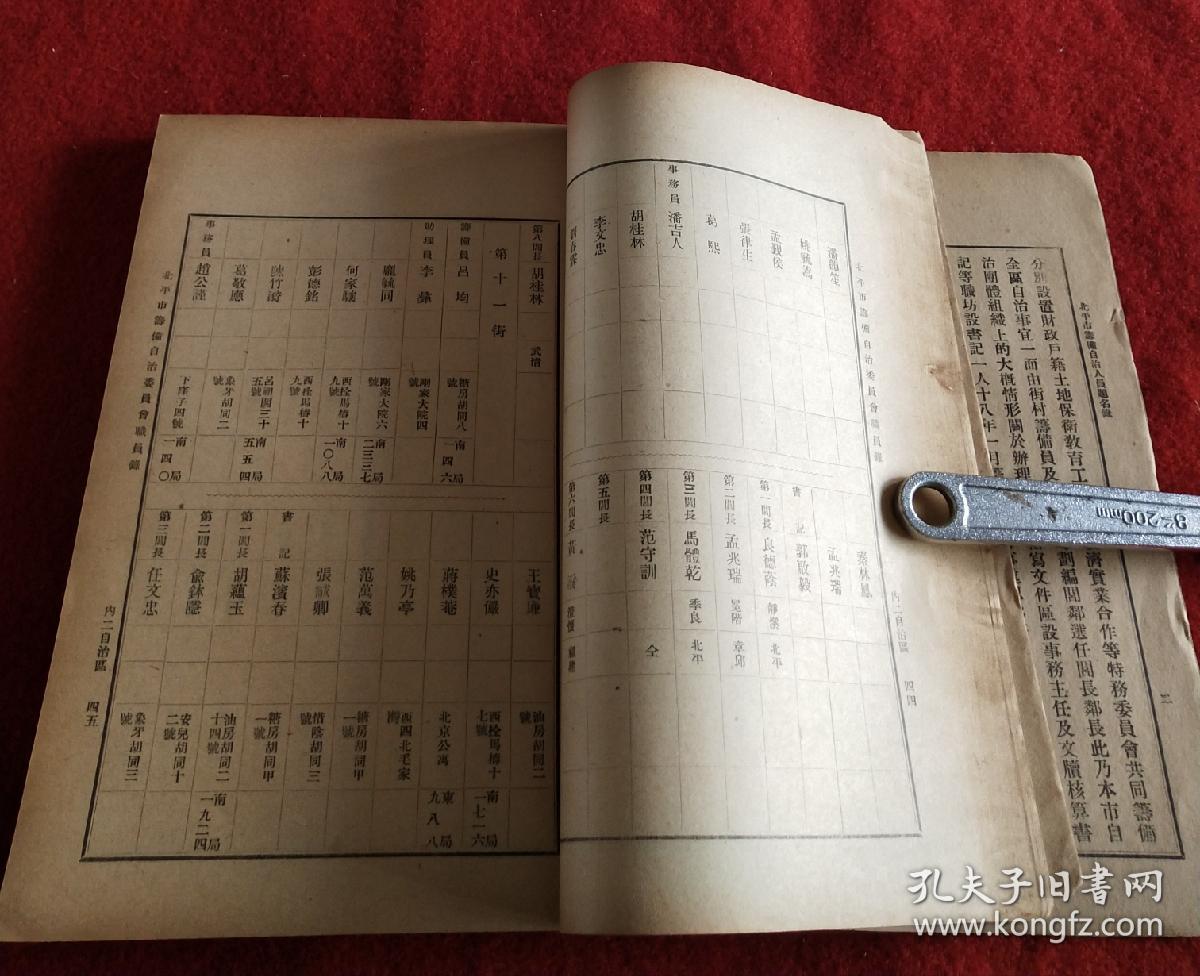 北平市籌備自治人員題名錄
三
分別設置財政戶籍土地保衛教育工
濟實業合作等特務委員會共同籌備
全區自治事宜一面由街村籌備員及
劃編閭鄰選任閭長鄰長此乃本市自
治團體組織上的大概情形關於辦理
寫文件區設事務主任及文牘核算書
記等職坊設書記一人十八年一月
平市籌備自治委員會職員錄
內二自治區
四四
張律生
葛熙
事務員
潘吉人
胡桂林
李文忠
孟兆瑞
書記
郭啟毅
第一閭長
良德蔭
靜瀠
北平
第二閭長
孟兆瑞
冕階
章邱
第三閭長
馬體乾
季良
北平
第四閭長
范守訓
仝
第五閭長
第六閭長
第八閭長
胡桂林
武清
第十一街
籌備員
呂均
糖房胡同八號
南局一四六
助理員
李彝
剛家大院四號
龐毓同
剛家大院六號
南局二三三七
何家驤
西栓馬樁十九號
南局一〇八八
彭德銘
西栓馬樁十九號
陳竹濤
呂祖閣三十五號
南局五五四
葛敬應
象牙胡同二號
事務員
趙公謹
下窪子四號
南局一四〇
王寶謙
油房胡同二號
史亦儼
西栓馬樁十七號
南局一七一六
蔣樸菴
北京公寓
東局九八八
姚乃亭
西四北毛家灣
范萬義
糖房胡同甲一號
張誠卿
惜陰胡同三號
書記
蘇濱春
糖房胡同甲一號
第一閭長
胡蘊玉
油房胡同二十四號
南局一九二四
第二閭長
俞鉢隱
安兒胡同十二號
第三閭長
任文忠
象牙胡同三號
北平市籌備自治委員會職員錄
內二自治區
四五
200mm
孔夫子旧書网
www.kongfz.com